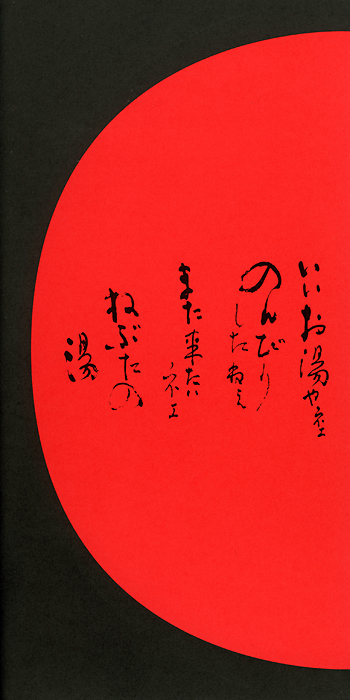 いいお湯やネェ
のんびり
したねぇ
また来たい
ネェ
ねぶたの
湯